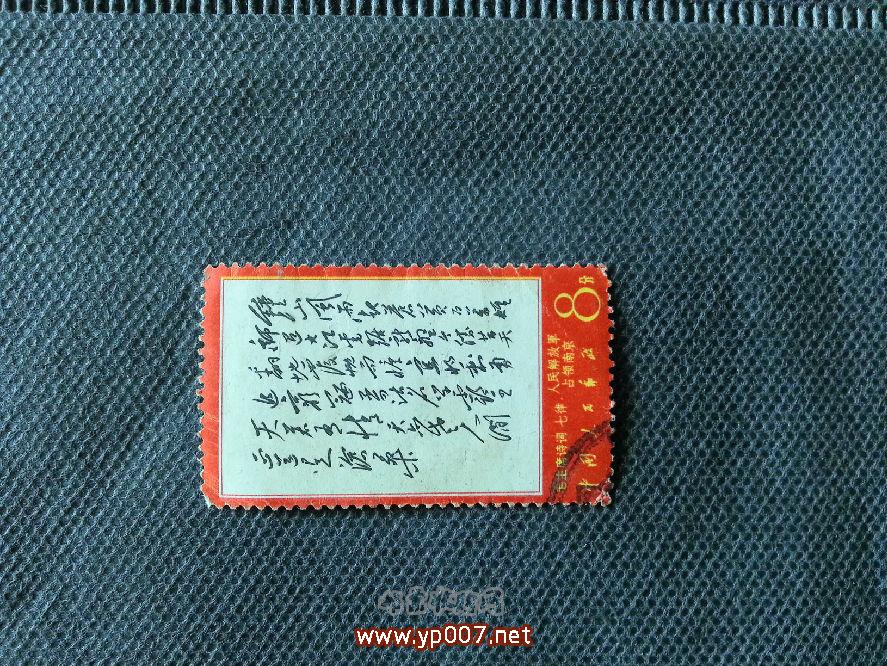 鍾山風雨起蒼黃百萬雄
師過大江虎踞龍盤今勝昔天
翻地覆慨而慷宜將剩勇
追窮寇不可沽名學霸王
天若有情天亦老人間
正道是滄桑
8分
毛主席诗词 七律 人民解放軍
占领南京
中国人民邮政
www.yp007.net